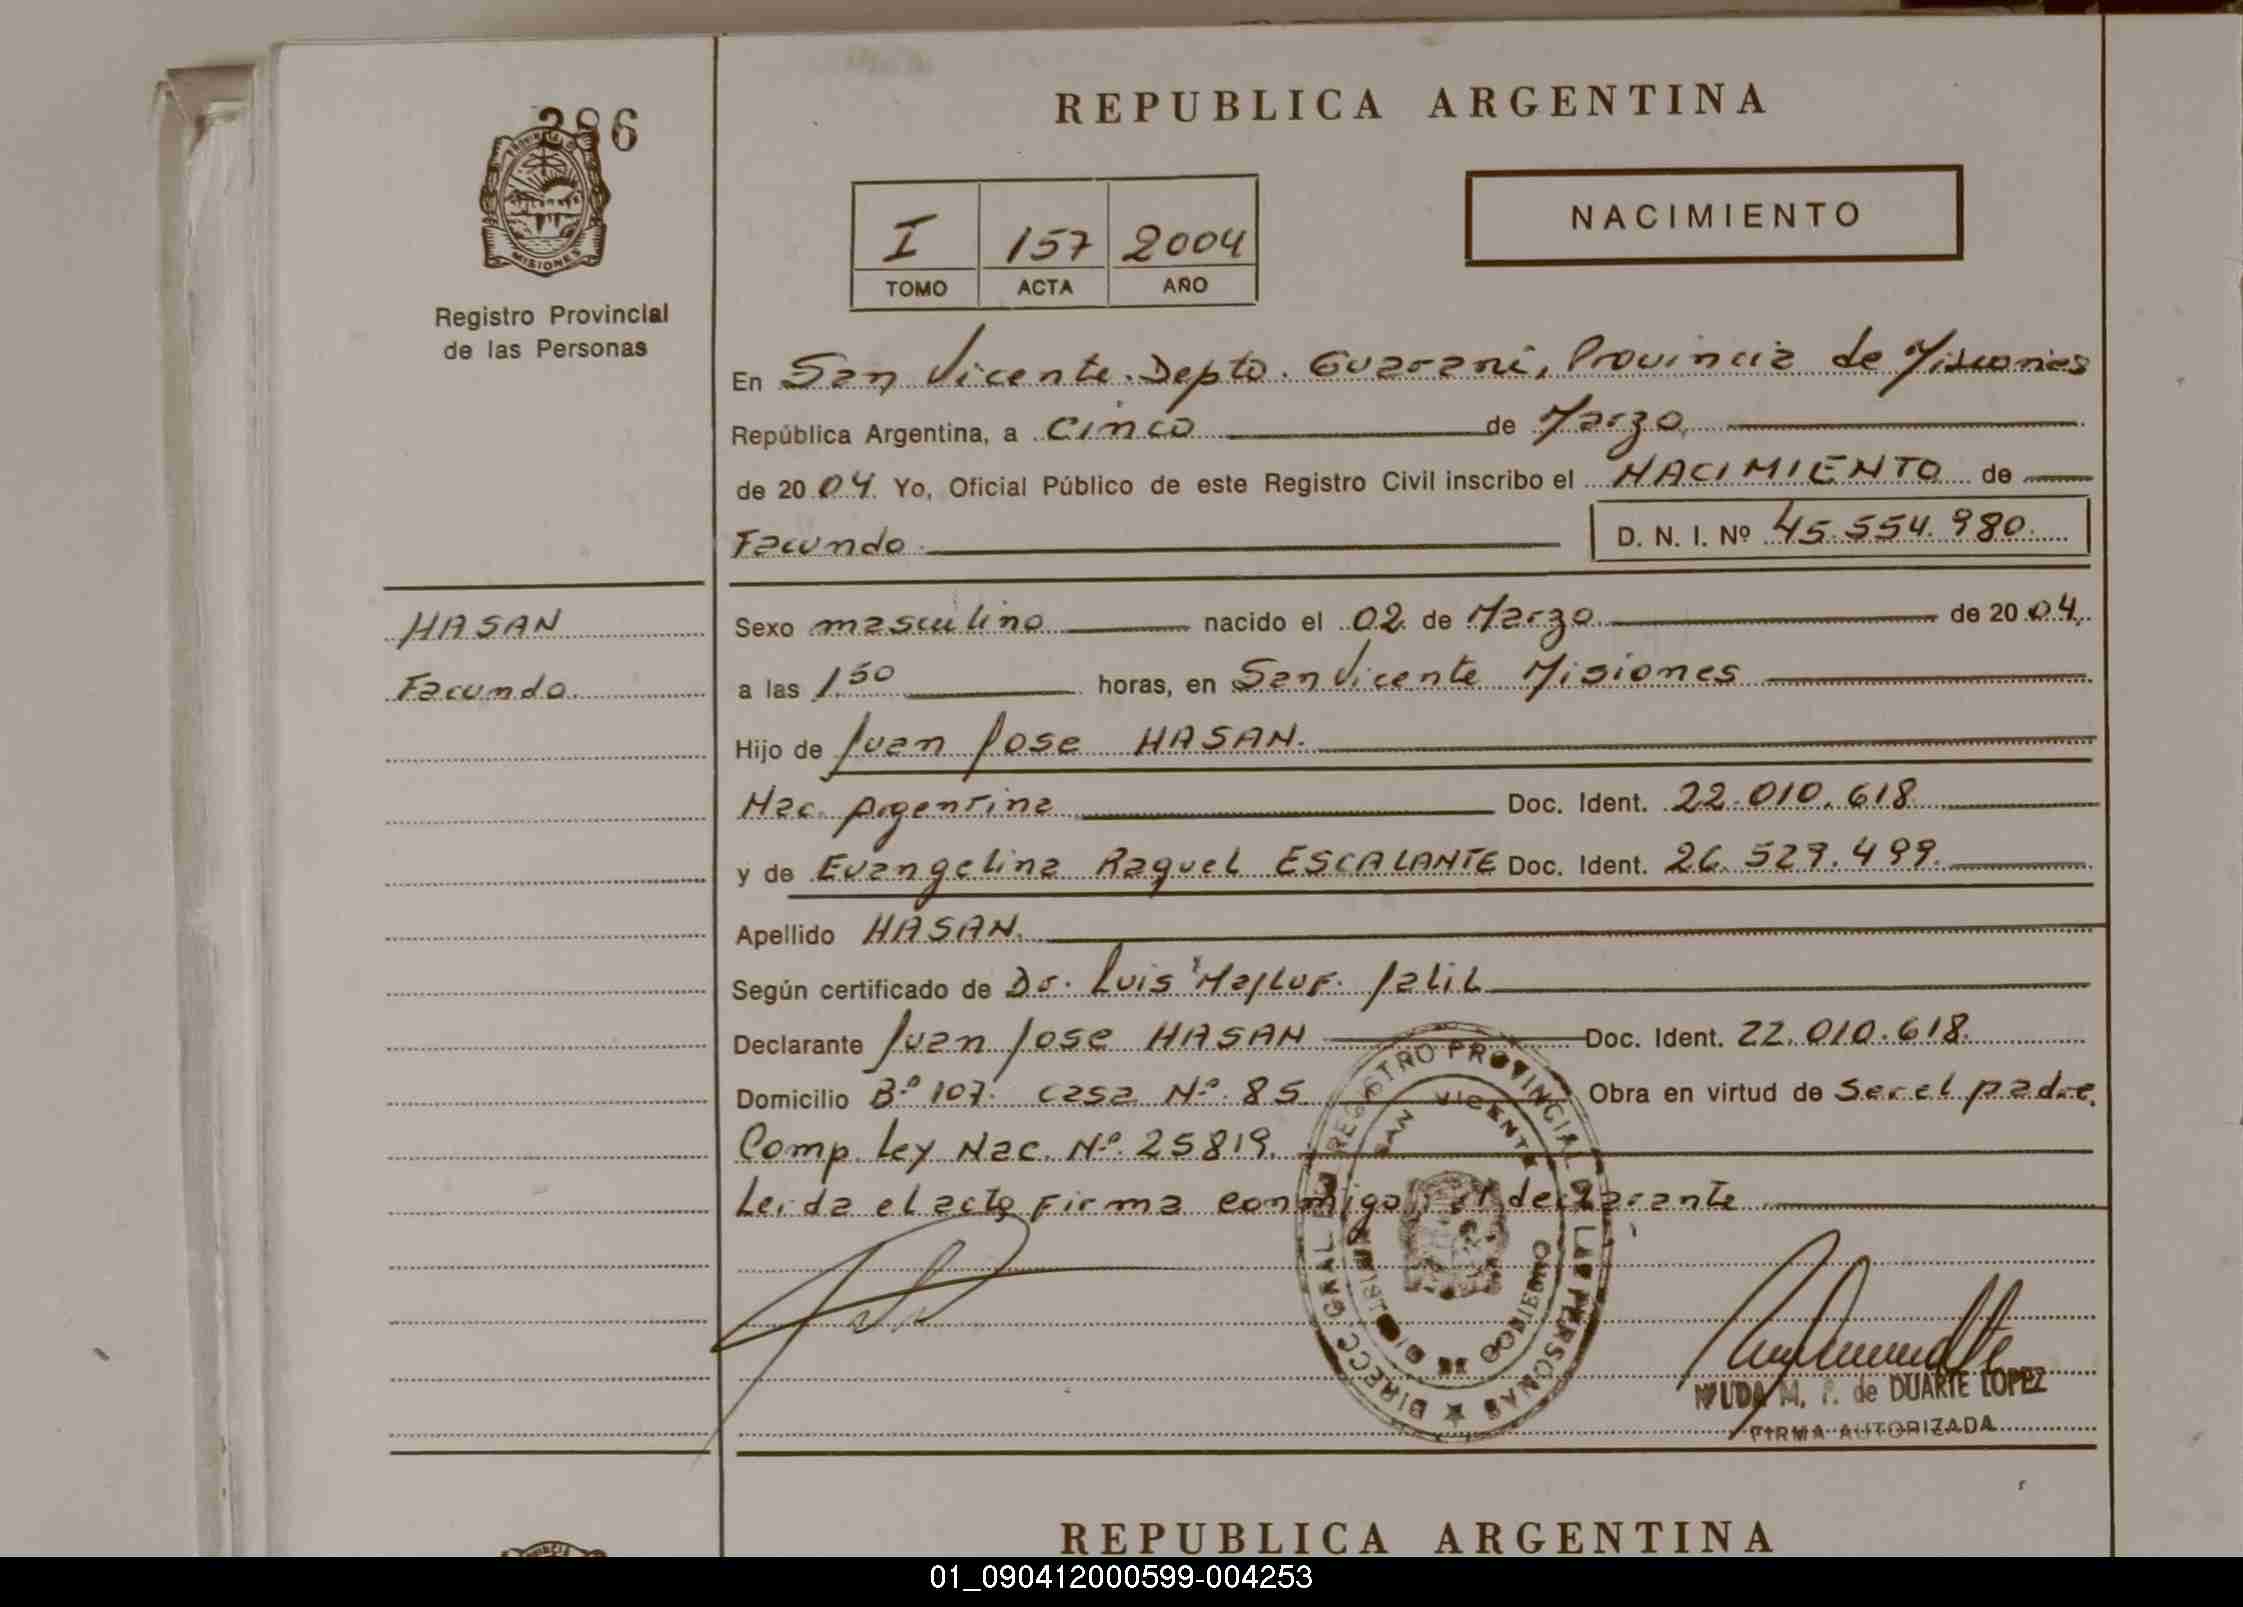 386
PROVINCIA DE
MISIONES
Registro Provincial
de las Personas
HASAN
Facundo.
REPUBLICA ARGENTINA
NACIMIENTO
I 157 2004
TOMO ACTA AÑO
En San Vicente. Depto. Guaraní, Provincia de Misiones
República Argentina, a Cinco de Marzo
de 2004. Yo, Oficial Público de este Registro Civil inscribo el NACIMIENTO de
Facundo. D. N. I. Nº 45.554.980.
Sexo masculino nacido el 02 de Marzo de 2004.
a las 1.50 horas, en San Vicente Misiones
Hijo de Juan Jose HASAN.
Nac. Argentina Doc. Ident. 22.010.618
y de Evangelina Raquel ESCALANTE Doc. Ident. 26.529.499.
Apellido HASAN.
Según certificado de Dr. Luis Majluf. Jalil
Declarante Juan Jose HASAN Doc. Ident. 22.010.618.
Domicilio Bº 107. Casa Nº 85 Obra en virtud de ser el padre.
Comp. Ley Nac. Nº 25819.
Leída el acta firma conmigo el declarante
DIRECC. GRAL. DEL REGISTRO PROVINCIAL DE LAS PERSONAS
SAN VICENTE
M. P. de DUARTE LOPEZ
FIRMA AUTORIZADA
REPUBLICA ARGENTINA
01_090412000599-004253